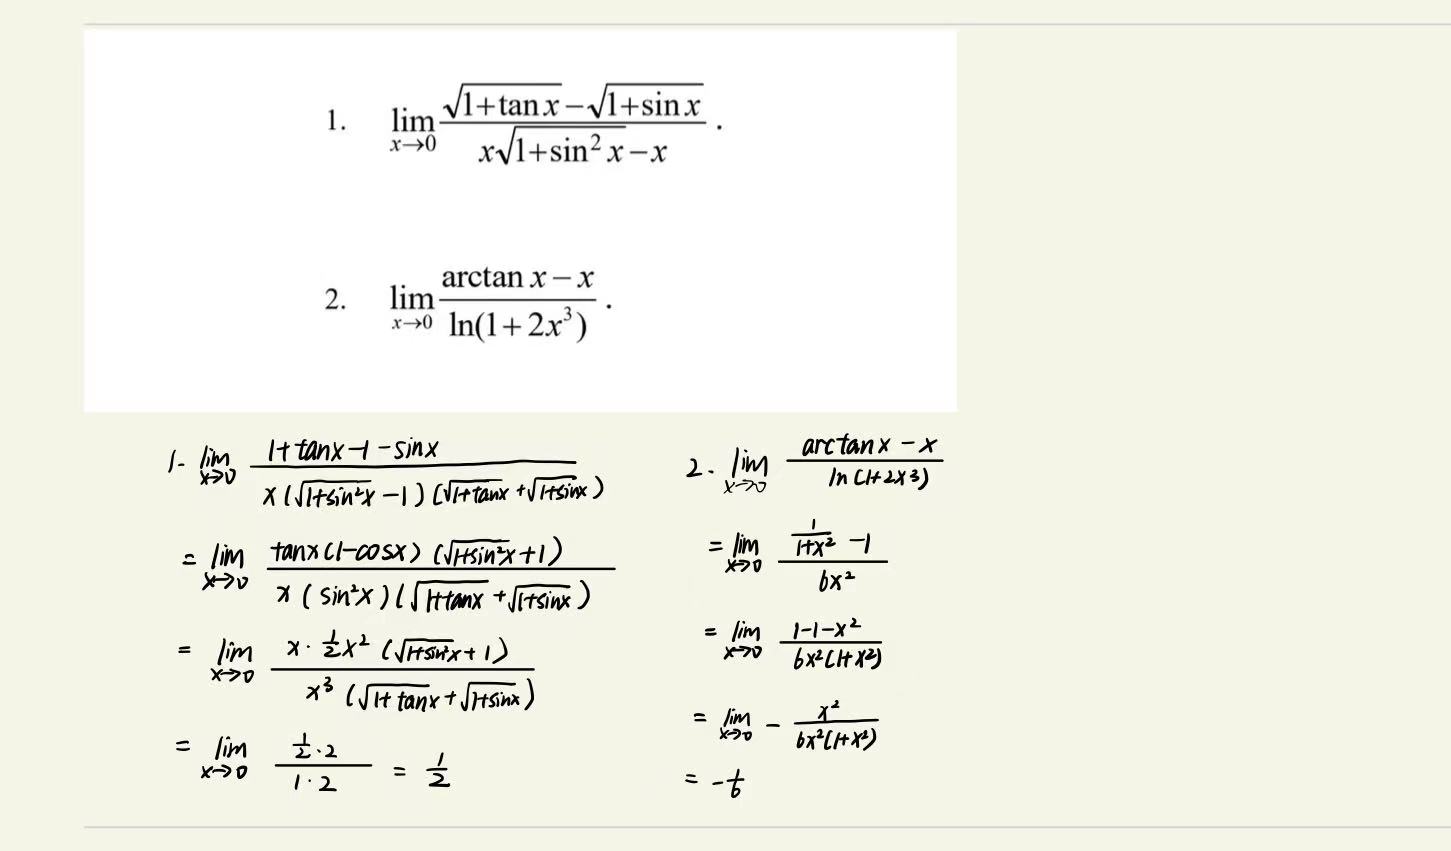 1. lim x→0 (√(1+tan x) − √(1+sin x)) / (x√(1+sin² x) − x) .
2. lim x→0 (arctan x − x) / ln(1+2x³) .
1. lim x→0 (1+tanx−1−sinx) / (x(√(1+sin²x) −1)(√(1+tanx) + √(1+sinx)))
= lim x→0 (tanx(1−cosx)(√(1+sin²x)+1)) / (x(sin²x)(√(1+tanx) + √(1+sinx)))
= lim x→0 (x·½x²(√(1+sin²x)+1)) / (x³(√(1+tanx)+√(1+sinx)))
= lim x→0 (½·2) / (1·2) = ½
2. lim x→0 (arctanx − x) / ln(1+2x3)
= lim x→0 (1/(1+x²) −1) / 6x²
= lim x→0 (1−1−x²) / 6x²(1+x²)
= lim x→0 − x² / 6x²(1+x²)
= −1/6